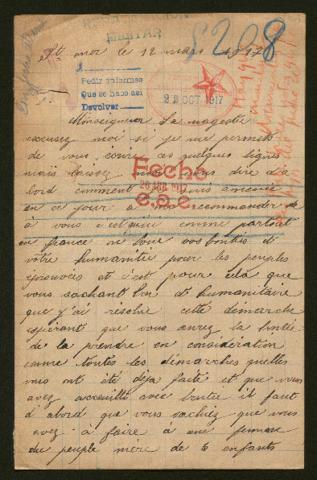 MILITAR
St omer le 12 mars 1917
5208
Pedir informes
Que se hace así
Devolver
22 OCT 1917
Monseigneur Sa magesté
excusez moi si je me permets
de vous écrire ces quelques lignes
mais laissez moi vous dire d'a
bord comment je suis amenée
en ce jour à me recommander
à vous c'est que comme partout
en france on loue vos bontés et
votre humanitée pour les peuples
éprouvées et c'est pour cela que
vous sachant bon et humanitaire
que j'ai résolue cette démarche
espérant que vous aurez la bontée
de la prendre en considération
comme toutes les démarches quelles
vous ont été déja faite et que vous
avez acceuillit avec bontée il faut
d'abord que vous sachiez que vous
avez à faire à une femme
du peuple mère de 6 enfants
Fecha